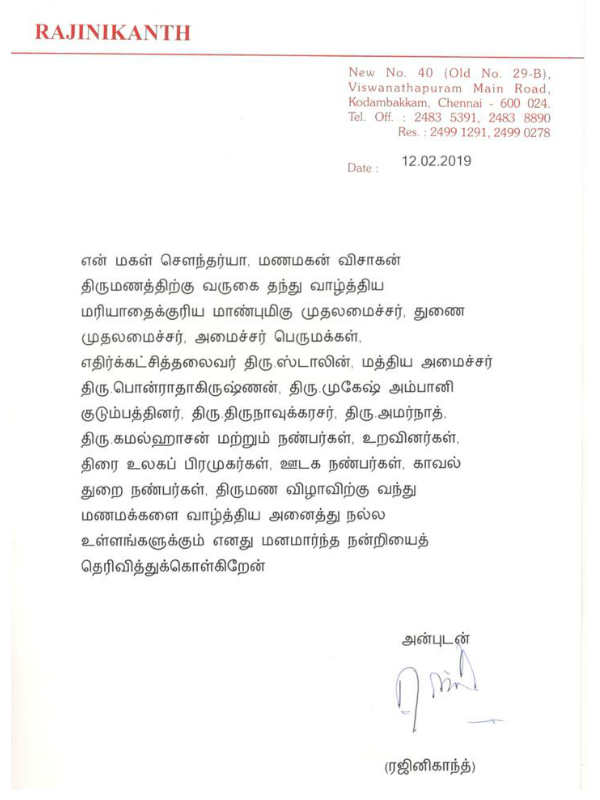 RAJINIKANTH
New No. 40 (Old No. 29-B),
Viswanathapuram Main Road,
Kodambakkam, Chennai - 600 024.
Tel. Off. : 2483 5391, 2483 8890
Res. : 2499 1291, 2499 0278
Date : 12.02.2019
என் மகள் சௌந்தர்யா, மணமகன் விசாகன்
திருமணத்திற்கு வருகை தந்து வாழ்த்திய
மரியாதைக்குரிய மாண்புமிகு முதலமைச்சர், துணை
முதலமைச்சர், அமைச்சர் பெருமக்கள்,
எதிர்க்கட்சித்தலைவர் திரு.ஸ்டாலின், மத்திய அமைச்சர்
திரு.பொன்ராதாகிருஷ்ணன், திரு.முகேஷ் அம்பானி
குடும்பத்தினர், திரு.திருநாவுக்கரசர், திரு.அமர்நாத்,
திரு.கமல்ஹாசன் மற்றும் நண்பர்கள், உறவினர்கள்,
திரை உலகப் பிரமுகர்கள், ஊடக நண்பர்கள், காவல்
துறை நண்பர்கள், திருமண விழாவிற்கு வந்து
மணமக்களை வாழ்த்திய அனைத்து நல்ல
உள்ளங்களுக்கும் எனது மனமார்ந்த நன்றியைத்
தெரிவித்துக்கொள்கிறேன்
அன்புடன்
(ரஜினிகாந்த்)